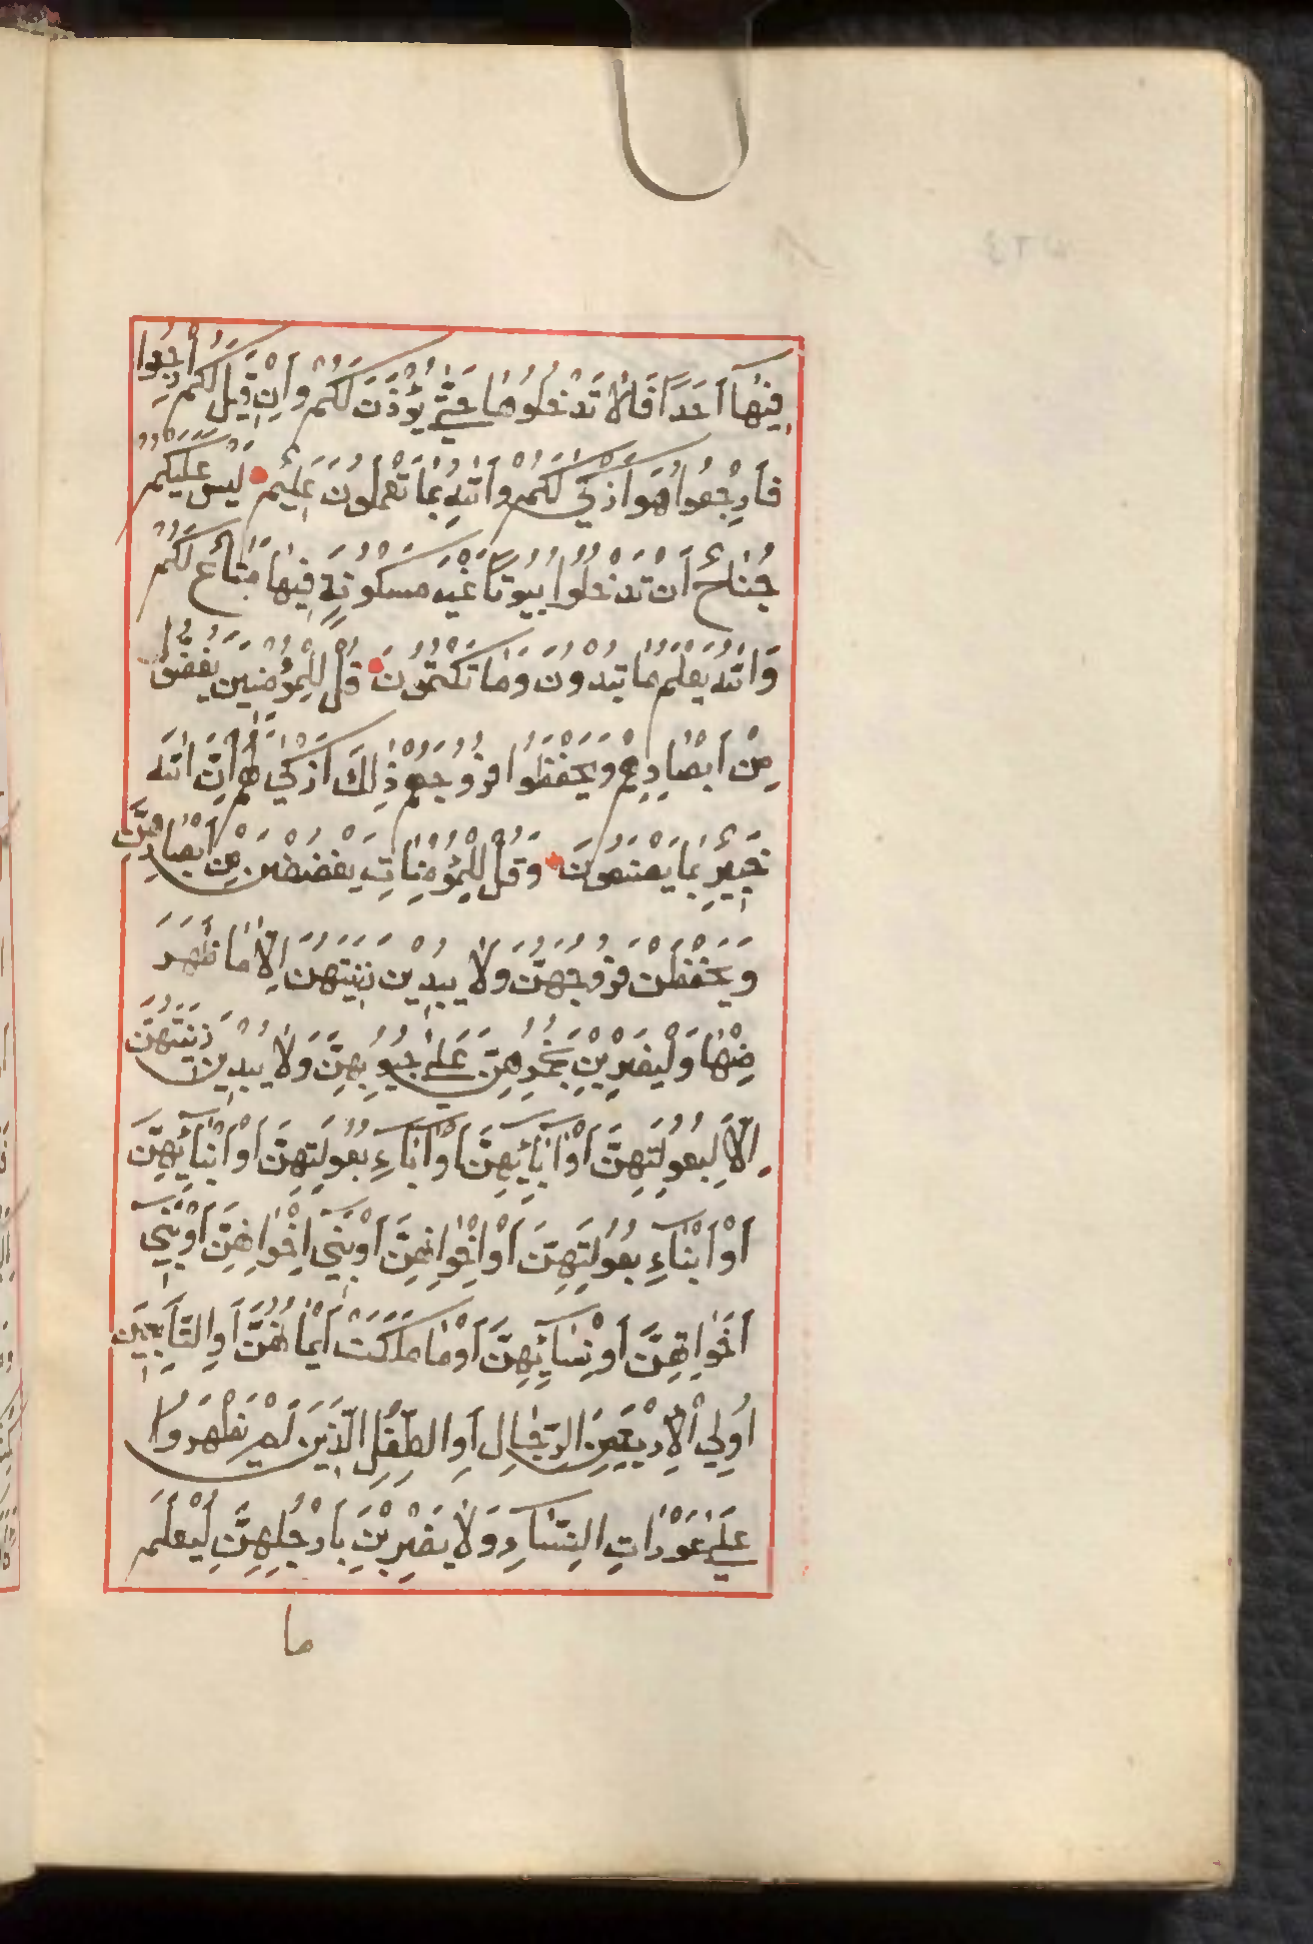 فِيهَآ اَحَدًا فَلَا تَدْخُلُوهَا حَتّٰى يُؤْذَنَ لَكُمْ وَاِنْ قِيلَ لَكُمُ ارْجِعُوا
فَارْجِعُوا هُوَ اَزْكٰى لَكُمْ وَاللّٰهُ بِمَا تَعْمَلُونَ عَلِيمٌ لَيْسَ عَلَيْكُمْ
جُنَاحٌ اَنْ تَدْخُلُوا بُيُوتًا غَيْرَ مَسْكُونَةٍ فِيهَا مَتَاعٌ لَكُمْ
وَاللّٰهُ يَعْلَمُ مَا تُبْدُونَ وَمَا تَكْتُمُونَ قُلْ لِلْمُؤْمِنِينَ يَغُضُّوا
مِنْ اَبْصَارِهِمْ وَيَحْفَظُوا فُرُوجَهُمْ ذٰلِكَ اَزْكٰى لَهُمْ اِنَّ اللّٰهَ
خَبِيرٌ بِمَا يَصْنَعُونَ وَقُلْ لِلْمُؤْمِنَاتِ يَغْضُضْنَ مِنْ اَبْصَارِهِنَّ
وَيَحْفَظْنَ فُرُوجَهُنَّ وَلَا يُبْدِينَ زِينَتَهُنَّ اِلَّا مَا ظَهَرَ
مِنْهَا وَلْيَضْرِبْنَ بِخُمُرِهِنَّ عَلٰى جُيُوبِهِنَّ وَلَا يُبْدِينَ زِينَتَهُنَّ
اِلَّا لِبُعُولَتِهِنَّ اَوْ اٰبَآئِهِنَّ اَوْ اٰبَآءِ بُعُولَتِهِنَّ اَوْ اَبْنَآئِهِنَّ
اَوْ اَبْنَآءِ بُعُولَتِهِنَّ اَوْ اِخْوَانِهِنَّ اَوْ بَنِىٓ اِخْوَانِهِنَّ اَوْ بَنِىٓ
اَخَوَاتِهِنَّ اَوْ نِسَآئِهِنَّ اَوْ مَا مَلَكَتْ اَيْمَانُهُنَّ اَوِ التَّابِعِينَ
اُولِى الْاِرْبَةِ مِنَ الرِّجَالِ اَوِ الطِّفْلِ الَّذِينَ لَمْ يَظْهَرُوا
عَلٰى عَوْرَاتِ النِّسَآءِ وَلَا يَضْرِبْنَ بِاَرْجُلِهِنَّ لِيُعْلَمَ
ما